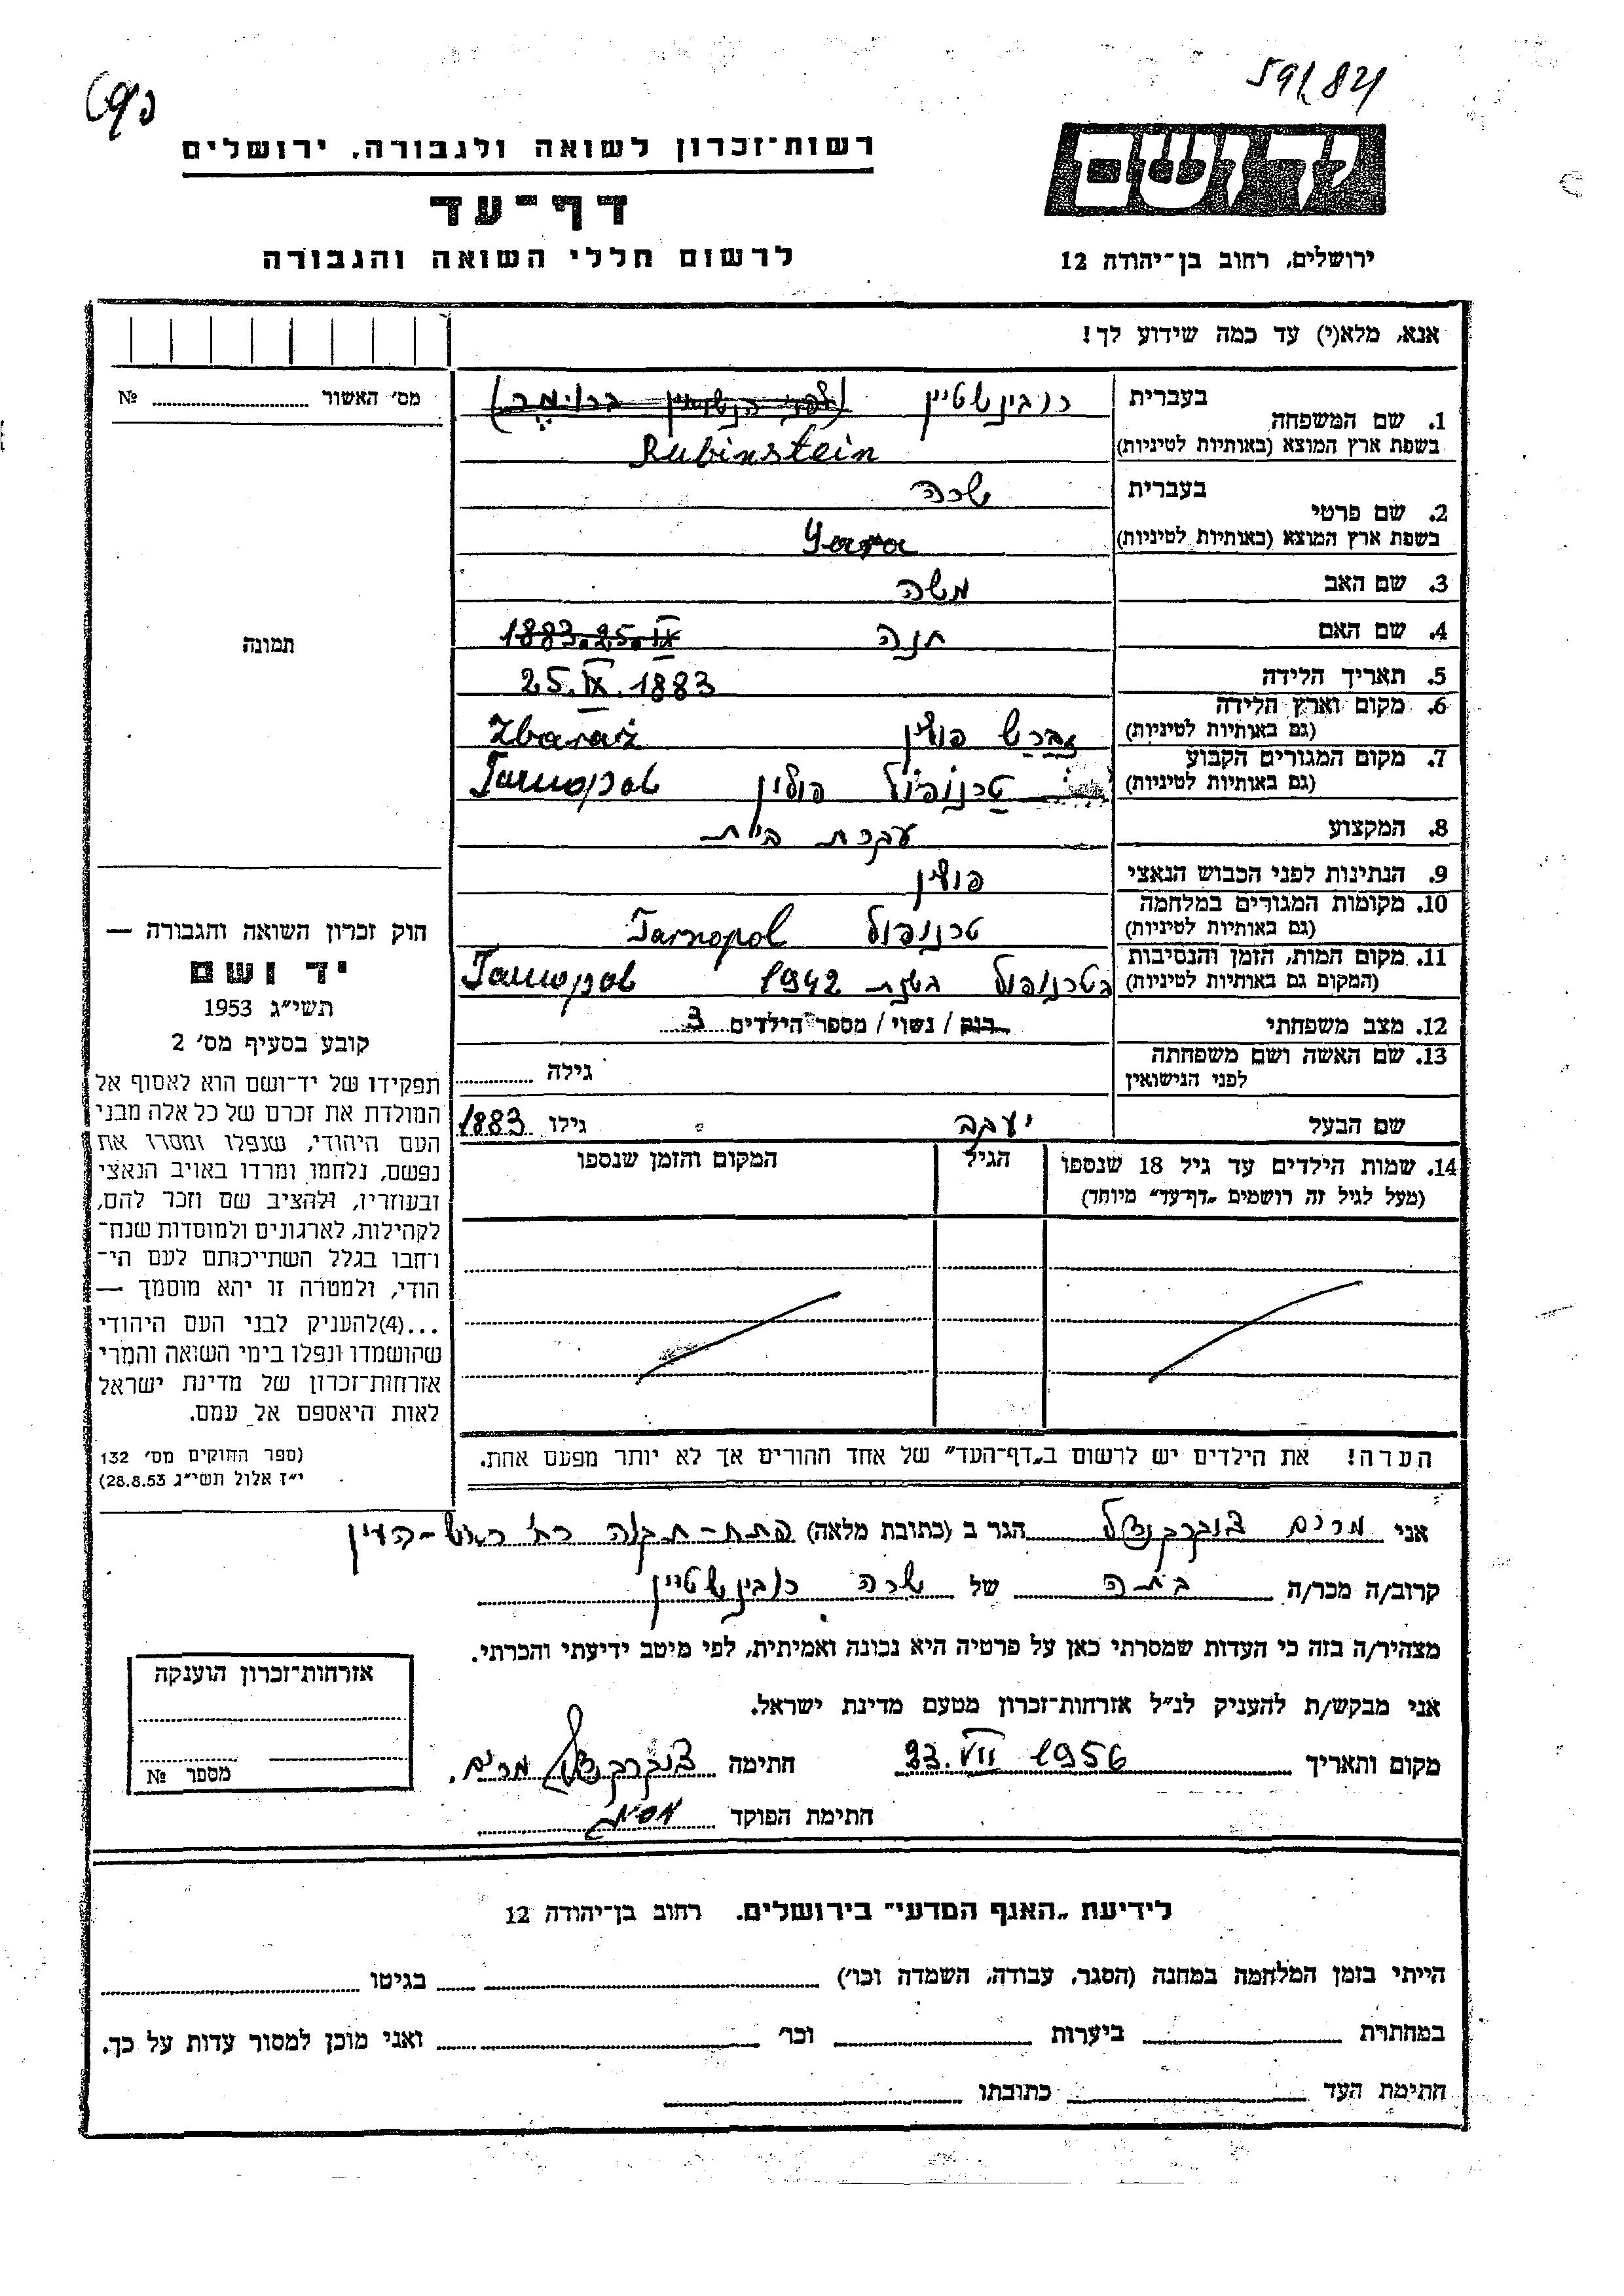 591/84
רשות־זכרון לשואה ולגבורה, ירושלים
דף־עד
לרשום חללי השואה והגבורה
ידושם
ירושלים, רחוב בן־יהודה 12
אנא, מלא(י) עד כמה שידוע לך!
מס׳ האשור № 
1. שם המשפחה בעברית רובינשטיין (לפני הנשואין
בשפת ארץ המוצא (באותיות לטיניות) Rubinstein
2. שם פרטי בעברית שרה
בשפת ארץ המוצא (באותיות לטיניות)
3. שם האב משה
4. שם האם חנה 1883.25.IX
5. תאריך הלידה 25.IX.1883
6. מקום וארץ הלידה (גם באותיות לטיניות) זברש פולין Zbaraż
7. מקום המגורים הקבוע (גם באותיות לטיניות) טרנופול פולין Tarnopol
8. המקצוע עקרת בית
9. הנתינות לפני הכבוש הנאצי פולין
10. מקומות המגורים במלחמה (גם באותיות לטיניות) טרנופול Tarnopol
11. מקום המות, הזמן והנסיבות (המקום גם באותיות לטיניות) בטרנופול בשנת 1942 Tarnopol
12. מצב משפחתי רוק / נשוי / מספר הילדים 3
13. שם האשה ושם משפחתה לפני הנישואין גילה
שם הבעל יעקב גילו 1883
14. שמות הילדים עד גיל 18 שנספו הגיל המקום והזמן שנספו
(מעל לגיל זה רושמים „דף־עד״ מיוחד)
הערה! את הילדים יש לרשום ב„דף־העד״ של אחד ההורים אך לא יותר מפעם אחת.
תמונה
חוק זכרון השואה והגבורה —
יד ושם
תשי״ג 1953
קובע בסעיף מס׳ 2
תפקידו של יד־ושם הוא לאסוף אל
המולדת את זכרם של כל אלה מבני
העם היהודי, שנפלו ומסרו את
נפשם, נלחמו ומרדו באויב הנאצי
ובעוזריו, ולהציב שם וזכר להם,
לקהילות, לארגונים ולמוסדות שנח־
רחבו בגלל השתייכותם לעם הי־
הודי, ולמטרה זו יהא מוסמך —
...(4)להעניק לבני העם היהודי
שהושמדו ונפלו בימי השואה והמרי
אזרחות־זכרון של מדינת ישראל
לאות היאספם אל עמם.
(ספר החוקים מס׳ 132
י״ז אלול תשי״ג 28.8.53)
אני מרים צוקרקנדל הגר ב (כתובת מלאה) פתח-תקוה רח׳ ראש-העין
קרוב/ה מכר/ה בתה של שרה רובינשטיין
מצהיר/ה בזה כי העדות שמסרתי כאן על פרטיה היא נכונה ואמיתית, לפי מיטב ידיעתי והכרתי.
אני מבקש/ת להעניק לנ״ל אזרחות־זכרון מטעם מדינת ישראל.
מקום ותאריך 23.VII 1956 חתימה צוקרקנדל מרים.
חתימת הפוקד
אזרחות־זכרון הוענקה
מספר №
לידיעת „האגף המדעי״ בירושלים. רחוב בן־יהודה 12
הייתי בזמן המלחמה במחנה (הסגר, עבודה, השמדה וכו׳) בגיטו
במחתרת ביערות וכו׳ ואני מוכן למסור עדות על כך.
חתימת העד כתובתו